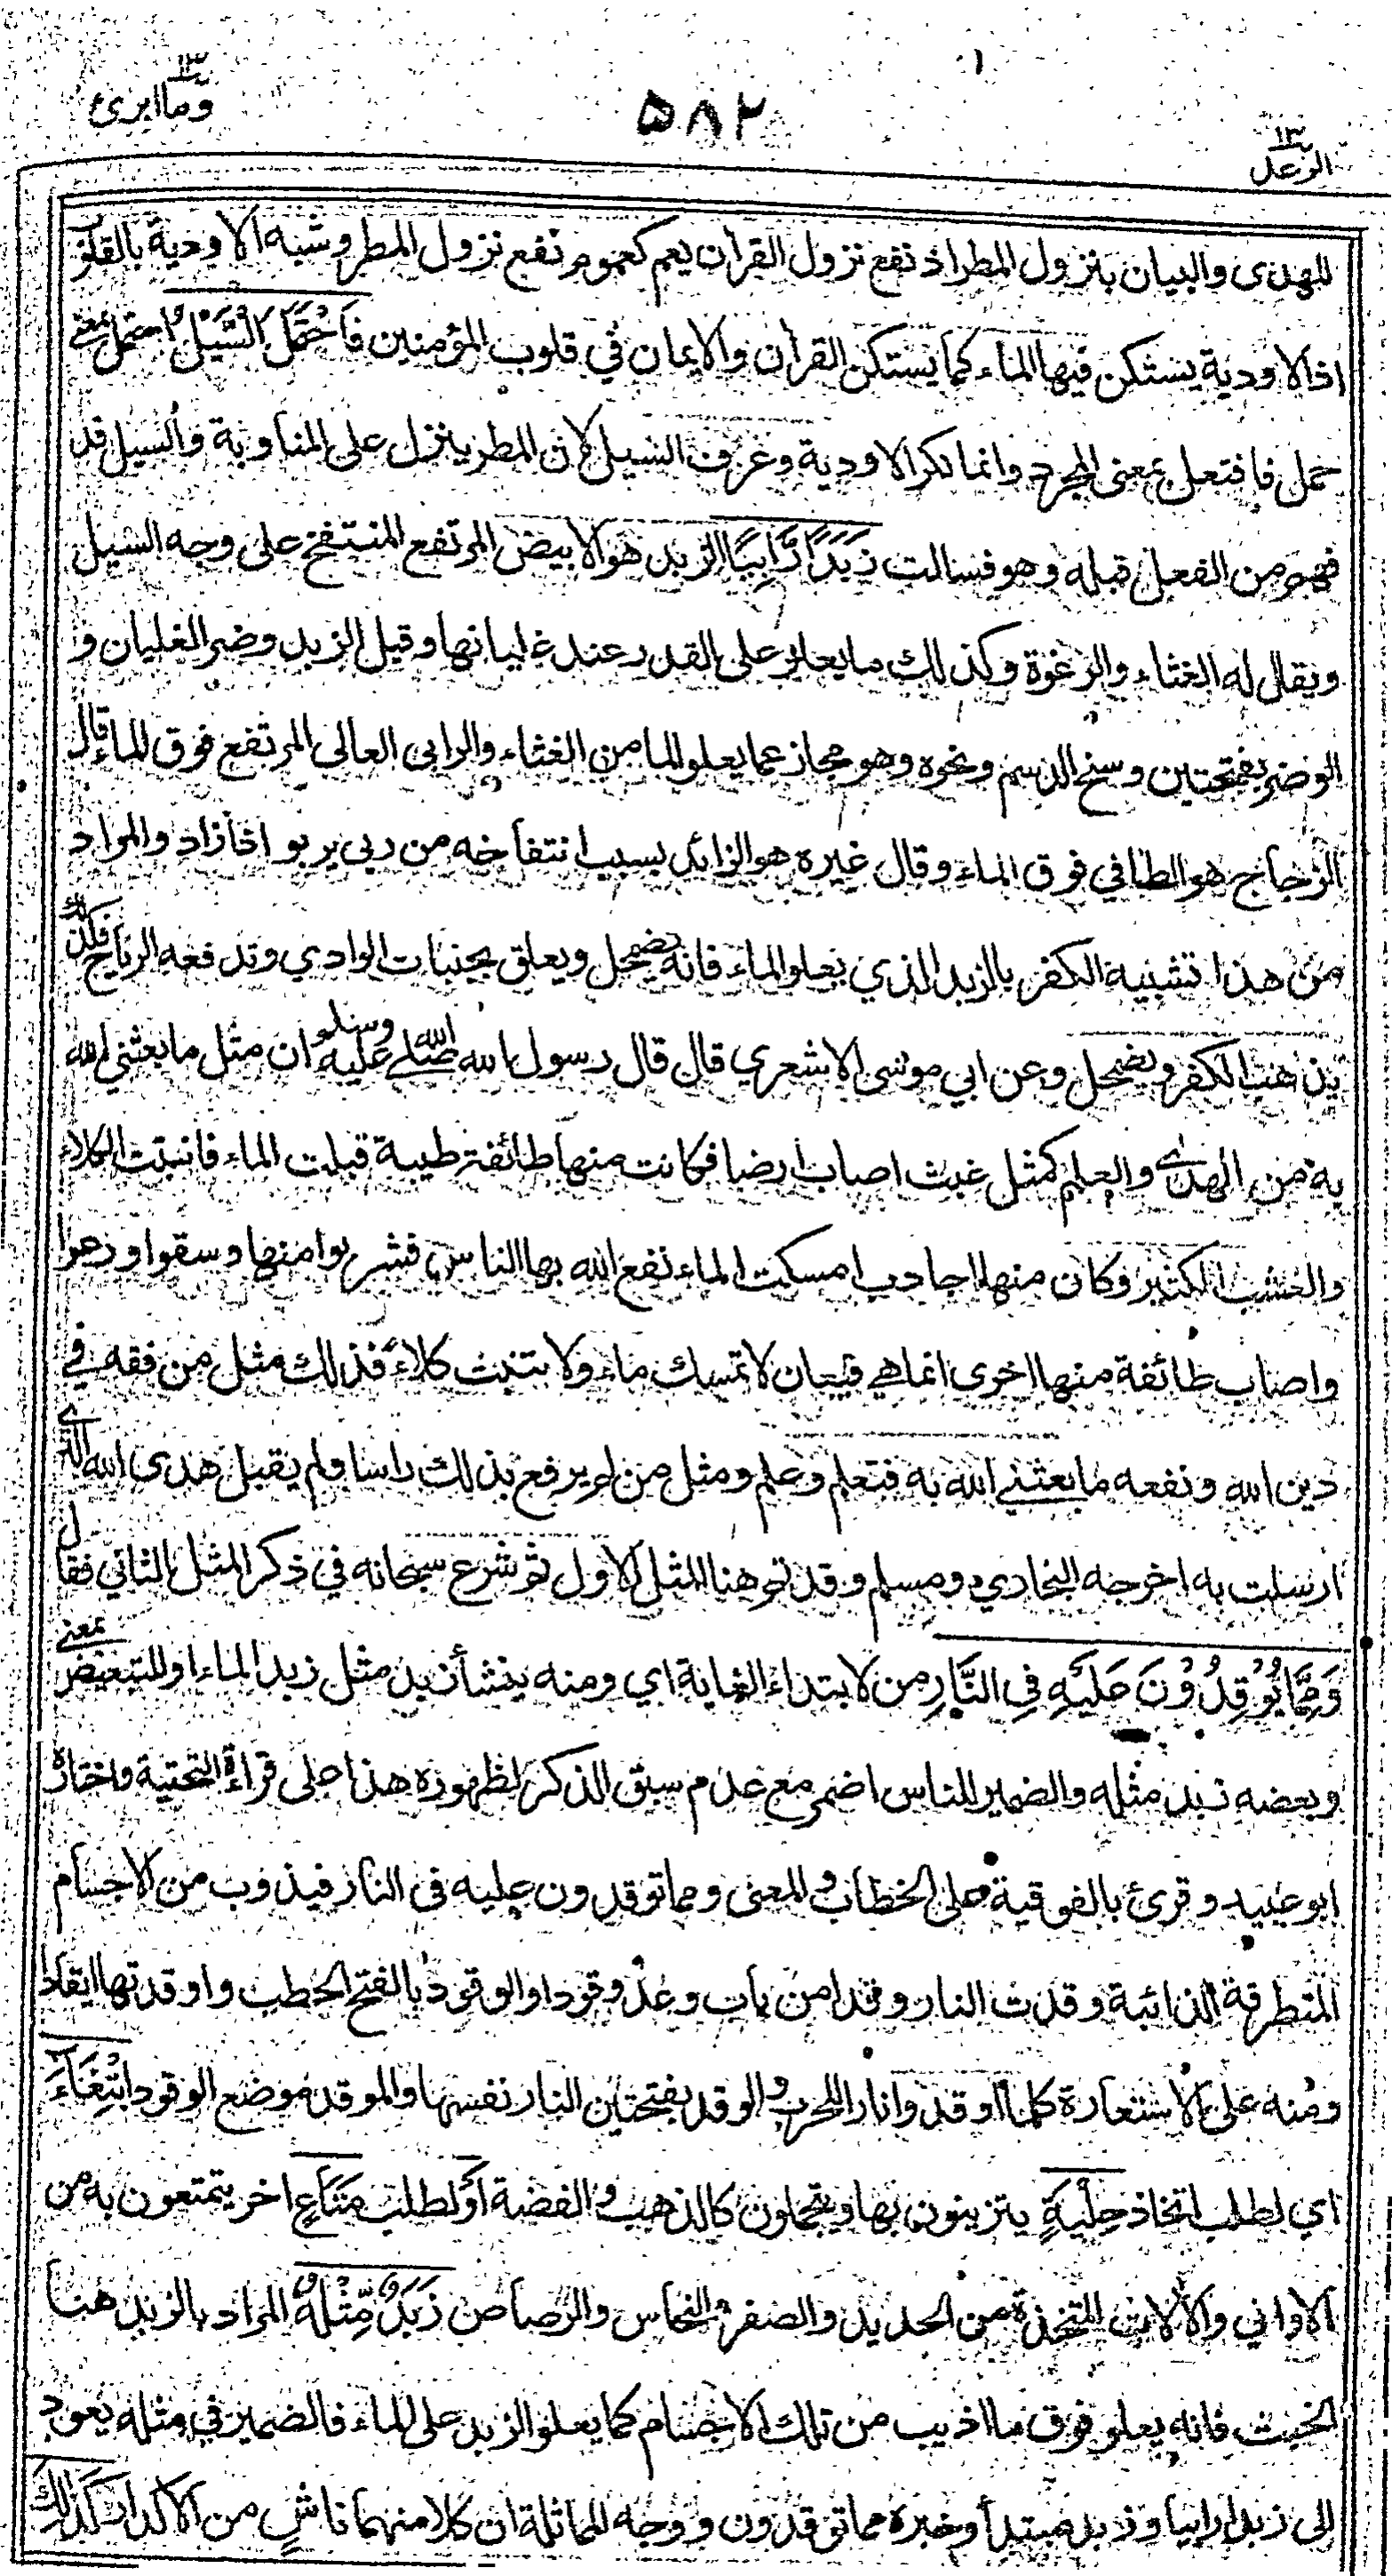 ١٣
وما ابرئ
٥٨٢
١٣
الرعد
للهدى والبيان بنزول المطر اذ نفع نزول القرآن يعم كعموم نفع نزول المطر وشبه الاودية بالقلوب
اذ الاودية يستكن فيها الماء كما يستكن القرآن والايمان في قلوب المؤمنين فَاحْتَمَلَ السَّيْلُ احتمل بمعنى
حمل فافتعل بمعنى المجرد وانما نكر الاودية وعرف السيل لان المطر ينزل على المناوبة والسيل قد
فهم من الفعل قبله وهو فسالت زَبَدًا رَّابِيًا الزبد هو الابيض المرتفع المنتفخ على وجه السيل
ويقال له الغثاء والرغوة وكذلك ما يعلو على القدر عند غليانها وقيل الزبد وضر الغليان و
الوضر بفتحتين وسخ الدسم ونحوه وهو مجاز عما يعلو الماء من الغثاء والرابي العالي المرتفع فوق الماء قال
الزجاج هو الطافي فوق الماء وقال غيره هو الزائد بسبب انتفاخه من ربى يربو اذا زاد والمراد
من هذا تشبيه الكفر بالزبد الذي يعلو الماء فانه يضمحل ويعلق بجنبات الوادي وتدفعه الرياح فكذلك
يذهب الكفر ويضمحل وعن ابي موسى الاشعري قال قال رسول الله صلى الله عليه وسلم ان مثل ما بعثني الله
به من الهدى والعلم كمثل غيث اصاب ارضا فكانت منها طائفة طيبة قبلت الماء فانبتت الكلاء
والعشب الكثير وكان منها اجادب امسكت الماء نفع الله بها الناس فشربوا منها وسقوا ورعوا
واصاب طائفة منها اخرى انما هي قيعان لا تمسك ماء ولا تنبت كلاء فذلك مثل من فقه في
دين الله ونفعه ما بعثني الله به فتعلم وعلم ومثل من لم يرفع بذلك راسا ولم يقبل هدى الله الذي
ارسلت به اخرجه البخاري ومسلم وقد تم هنا المثل الاول ثم شرع سبحانه في ذكر المثل الثاني فقال
وَمِمَّا يُوْقِدُوْنَ عَلَيْهِ فِى النَّارِ من لابتداء الغاية اي ومنه ينشأ زبد مثل زبد الماء او للتبعيض بمعنى
وبعضه زبد مثله والضمير للناس اضمر مع عدم سبق الذكر لظهوره هذا على قراءة التحتية واختاره
ابو عبيد وقرئ بالفوقية على الخطاب والمعنى ومما توقدون عليه في النار فيذوب من الاجسام
المنطرقة الذائبة وقدت النار وقدا من باب وعد ووقودا والوقود بالفتح الحطب واوقدتها ايقادا
ومنه على الاستعارة كلما اوقدوا نارا للحرب والوقد بفتحتين النار نفسها والموقد موضع الوقود ابْتِغَاءَ
اي لطلب اتخاذ حِلْيَةٍ يتزينون بها ويتجملون كالذهب والفضة أَوْ لطلب مَتَاعٍ اخر يتمتعون به من
الاواني والآلات المتخذة من الحديد والصفر والنحاس والرصاص زَبَدٌ مِّثْلُهٗ المراد بالزبد هنا
الخبث فانه يعلو فوق ما اذيب من تلك الاجسام كما يعلو الزبد على الماء فالضمير في مثله يعود
الى زبدا رابيا وزبد مبتدأ وخبره مما توقدون ووجه المماثلة ان كلا منهما ناشٍ من الاكدار كَذٰلِكَ